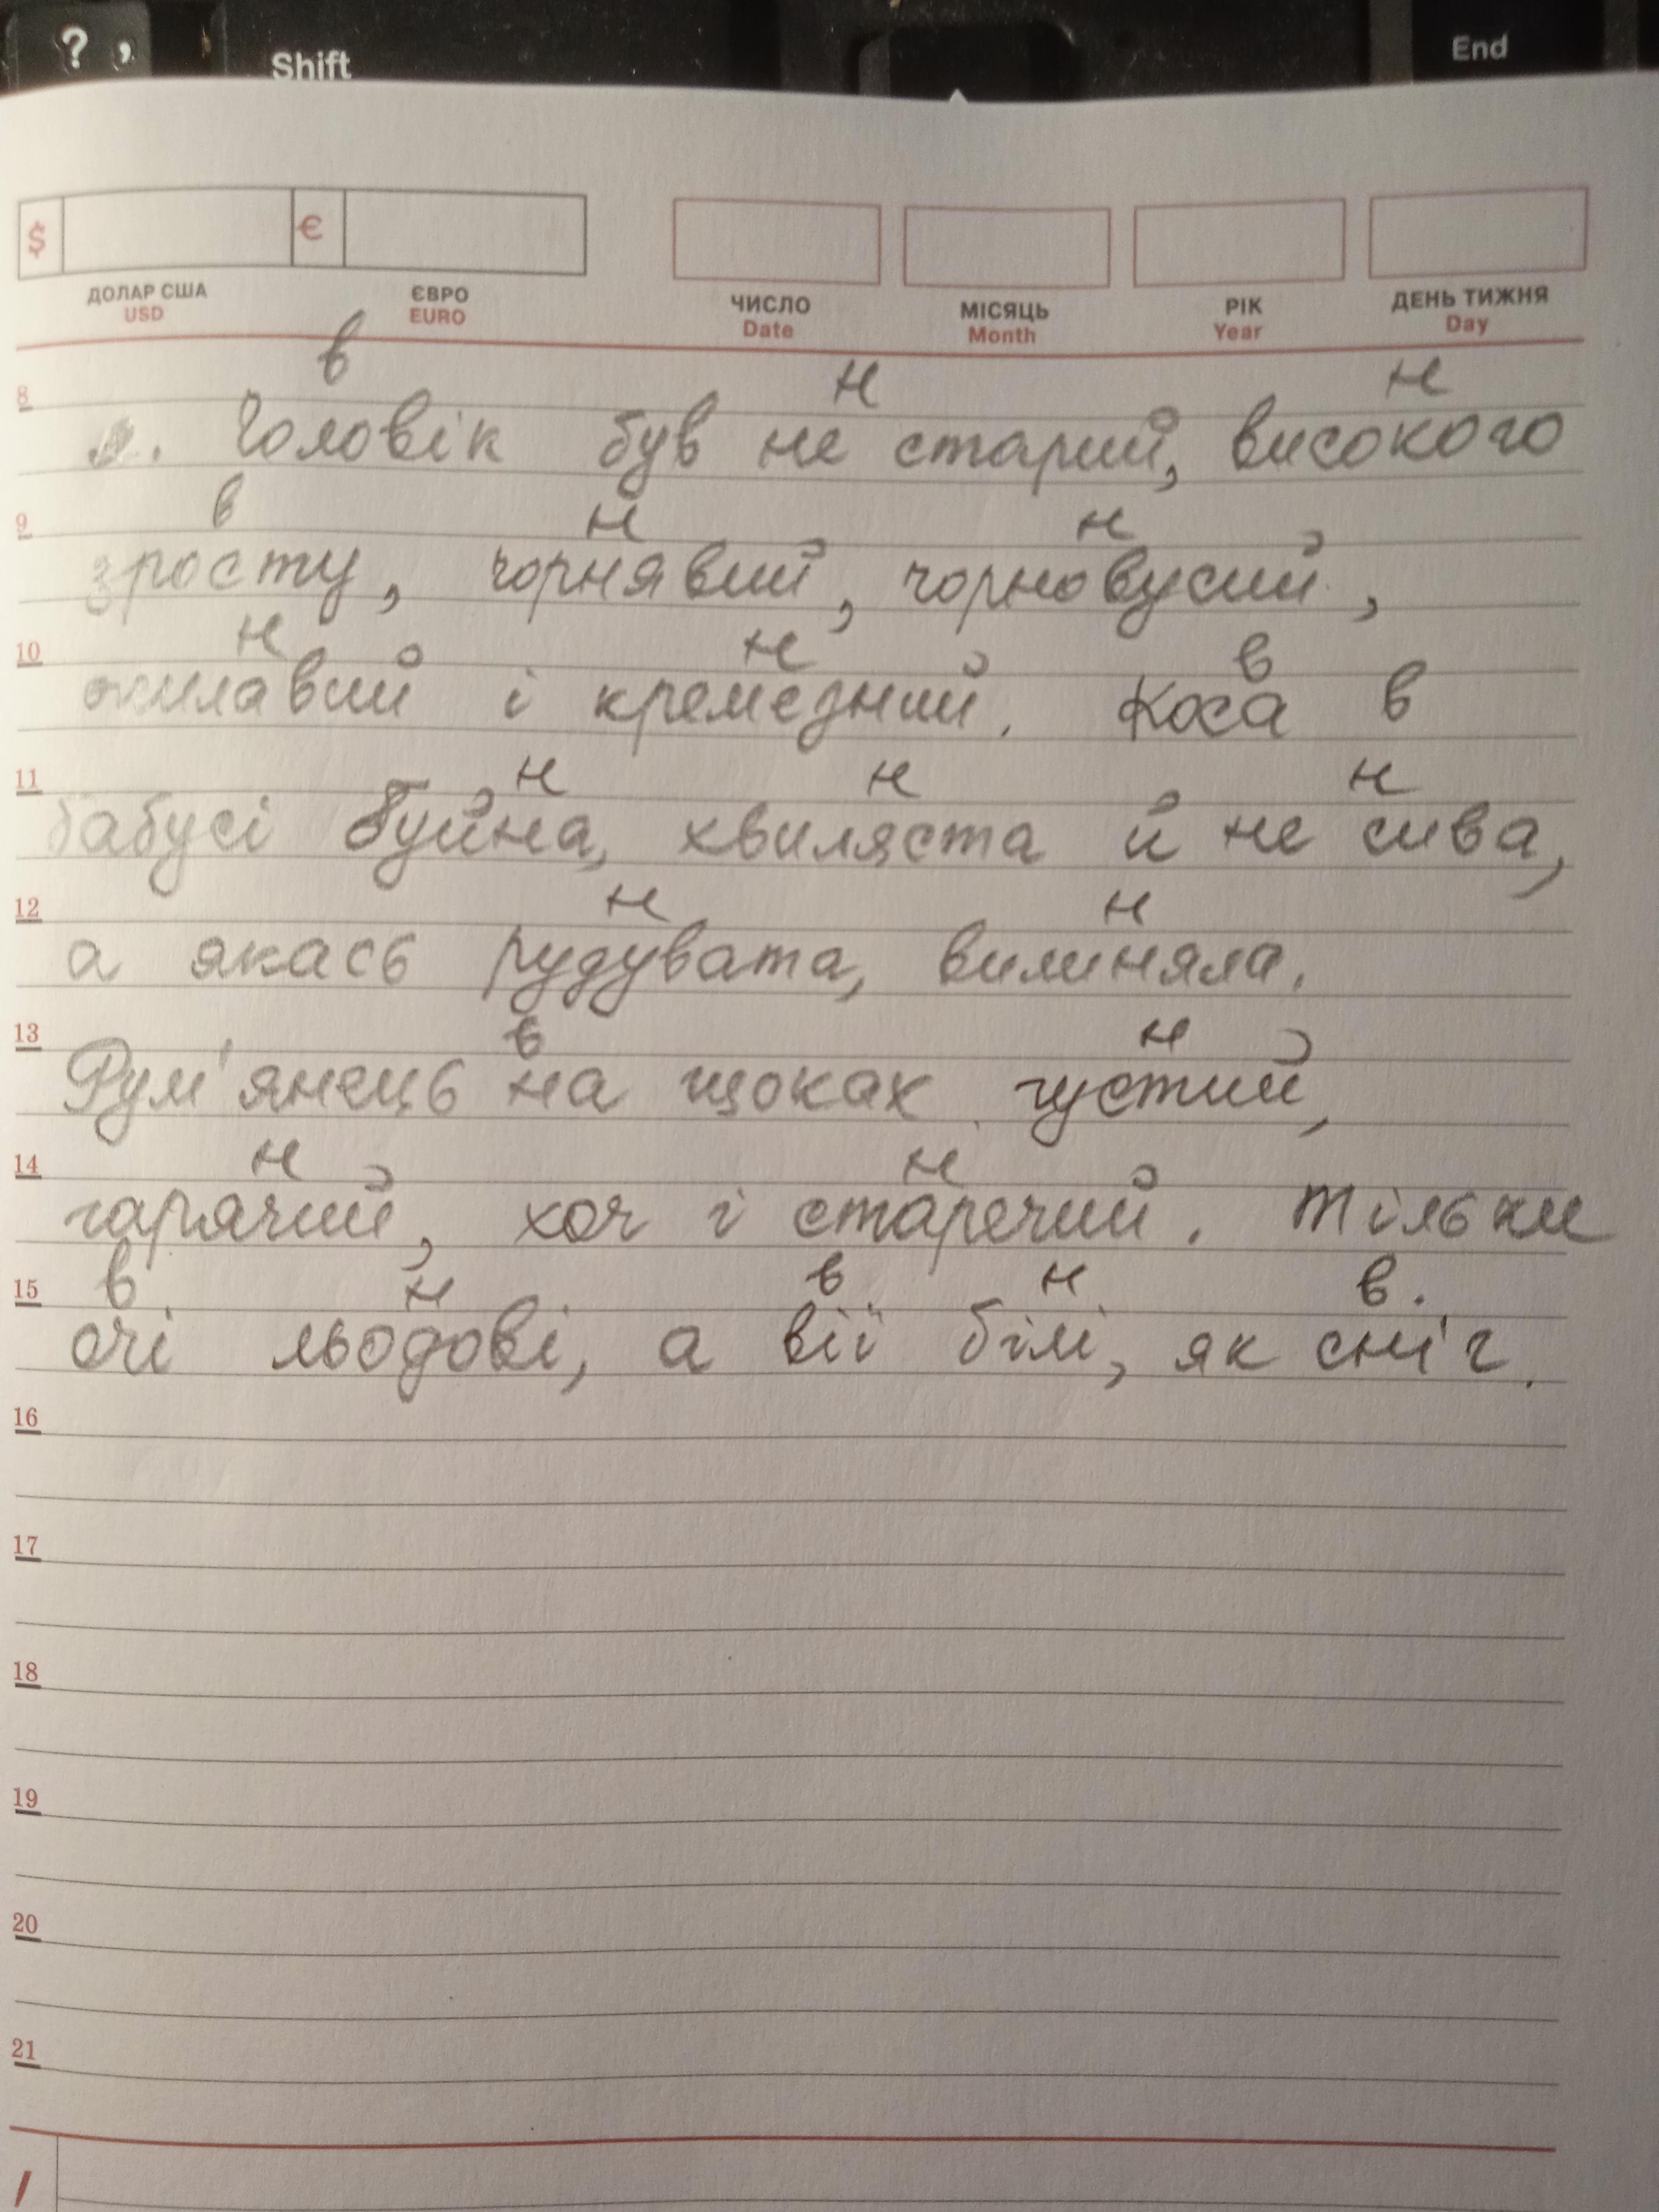 ? ,
Shift
End
$ €
ДОЛАР США ЄВРО ЧИСЛО МІСЯЦЬ РІК ДЕНЬ ТИЖНЯ
USD EURO Date Month Year Day
в н н
8 Чоловік був не старий, високого
в н н
9 зросту, чорнявий, чорновусий,
н н в
10 жилавий і кремезний. Коса в
н н н
11 бабусі буйна, хвиляста й не сива,
н н
12 а якась рудувата, вилиняла.
в н
13 Рум'янець на щоках густий,
н н
14 гарячий, хоч і старечий. Тільки
в н в н в.
15 очі льодові, а вії білі, як сніг.
16
17
18
19
20
21